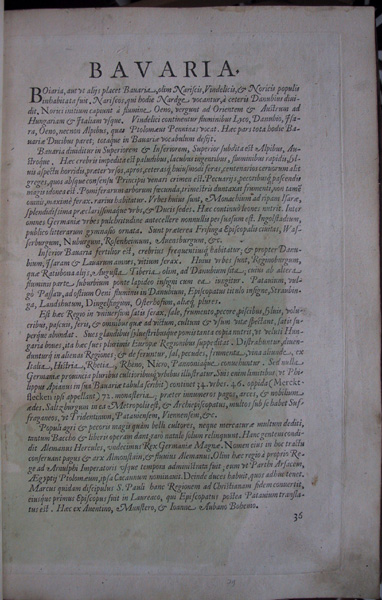 BAVARIA.
BOiaria, aut ut alijs placet Bavaria, olim Nariscis, Vindelicis, & Noricis populis
inhabitata fuit. Nariscis, qui hodie Nordge vocantur, à ceteris Danubius divi-
dit. Noricus initium capiunt à flumine Oeno, vergunt ad Orientem & Austrum ad
Hungariam & Italiam usque. Vindelici continentur fluminibus Lyco, Danubio, Isa-
ra, Oeno, necnon Alpibus, quas Ptolomæus Penninas vocat. Hæc pars tota hodie Ba-
variæ Ducibus paret, totaque in Bavariæ vocabulum desijt.
Bavaria dividitur in Superiorem & Inferiorem, Superior subdita est Alpibus, Au-
stroque. Hæc crebris impedita est paludibus, lacubus ingentibus, fluminibus rapidis, sil-
vis aspectu horridis, præter ursos, apros,
magis idonea est. Pomiferarum arborum fecunda,
nè maximè ferax, rarius habitatur. Urbes huius sunt, Monachium ad ripam Isaræ,
splendidissima præclarissimaque urbs, & Ducis sedes.
omnes Germaniæ urbes pulchritudine antecellere nonnullis persuasum est. Ingolstadium,
publico litterarum gymnasio ornata. Sunt præterea Frisinga Episcopalis civitas, Was-
serburgum, Neuburgum, Rosenheinum, Auensburgum, &c.
Inferior Bavaria fertilior est, crebrius frequentiusque habitatur, & propter Danu-
bium, Isaram & Lauarum amnes, vitium ferax. Huius urbes sunt, Reginoburgum,
quæ Ratisbona alijs, Augusta Tiberia, olim, ad Danubium sita, cuius ab altera
fluminis parte, suburbium ponte lapideo insigni cum ea iungitur. Patavium, vul-
gò Passau, ad ostium Oeni fluminis in Danubium, Episcopatus titulo insigne, Straubin-
ga, Landshutum, Dingelfingium, Osterhofium, aliæque plures.
Est hæc Regio in universum satis ferax, sale, frumento, pecore, piscibus, silvis, volu-
cribus, pascuis, feris, & omnibus quæ ad victum, cultum & usum vitæ spectant, satis su-
perque abundat.
Hungaria boves, ita hæc sues plerisque Europæ Regionibus suppeditat. Distrahuntur, divæ-
dunturque in alienas Regiones, & deferuntur, sal, pecudes, frumenta, vina aliunde, ex
Italia, Histria, Rhetia, Rheno, Nicro, Pannoniaque convehuntur. Sed nulla
Germaniæ provincia pluribus cultioribusque urbibus illustratur.
lippus Apianus in sua Bavariæ tabula scribit) continet 34. urbes. 46. oppida (Merckt-
flecken ipsi appellant) 72. monasteria, præter innumeros pagos, arces, & nobilium
ædes. Saltzburgum nota Metropolis est, & Archiepiscopatus, multos sub se habet Suf-
fraganeos, ut Tridentinum, Pataviensem, Viennensem, &c.
Populi agris & pecoris magis quàm belli cultores, neque mercaturæ multum dediti,
tantum Baccho & liberis operam dant, rarò natale solum relinquunt. Hanc gentem condi-
dit Alemanus Hercules, undecimus Rex Germaniæ Magnæ. Nomen eius in hoc tractu
conservant pagus & arx Almonstain, & fluvius Alemanus. Olim hæc regio à proprijs Re-
gibus ad Arnulphi Imperatoris usque tempora administrata fuit, eam ut Parthi Arsacem,
Ægyptij Ptolomæum, ipsa Cacannum nominant. Deinde duces habuit, quos adhuc tenet.
Marcus quidam discipulus S. Pauli hanc Regionem ad Christianam fidem convertit,
eiusque primus Episcopus fuit in Laureaco, qui Episcopatus postea Patavium transla-
tus est. Hæc ex Aventino, Munstero, & Ioanne Aubano Bohemo.
36